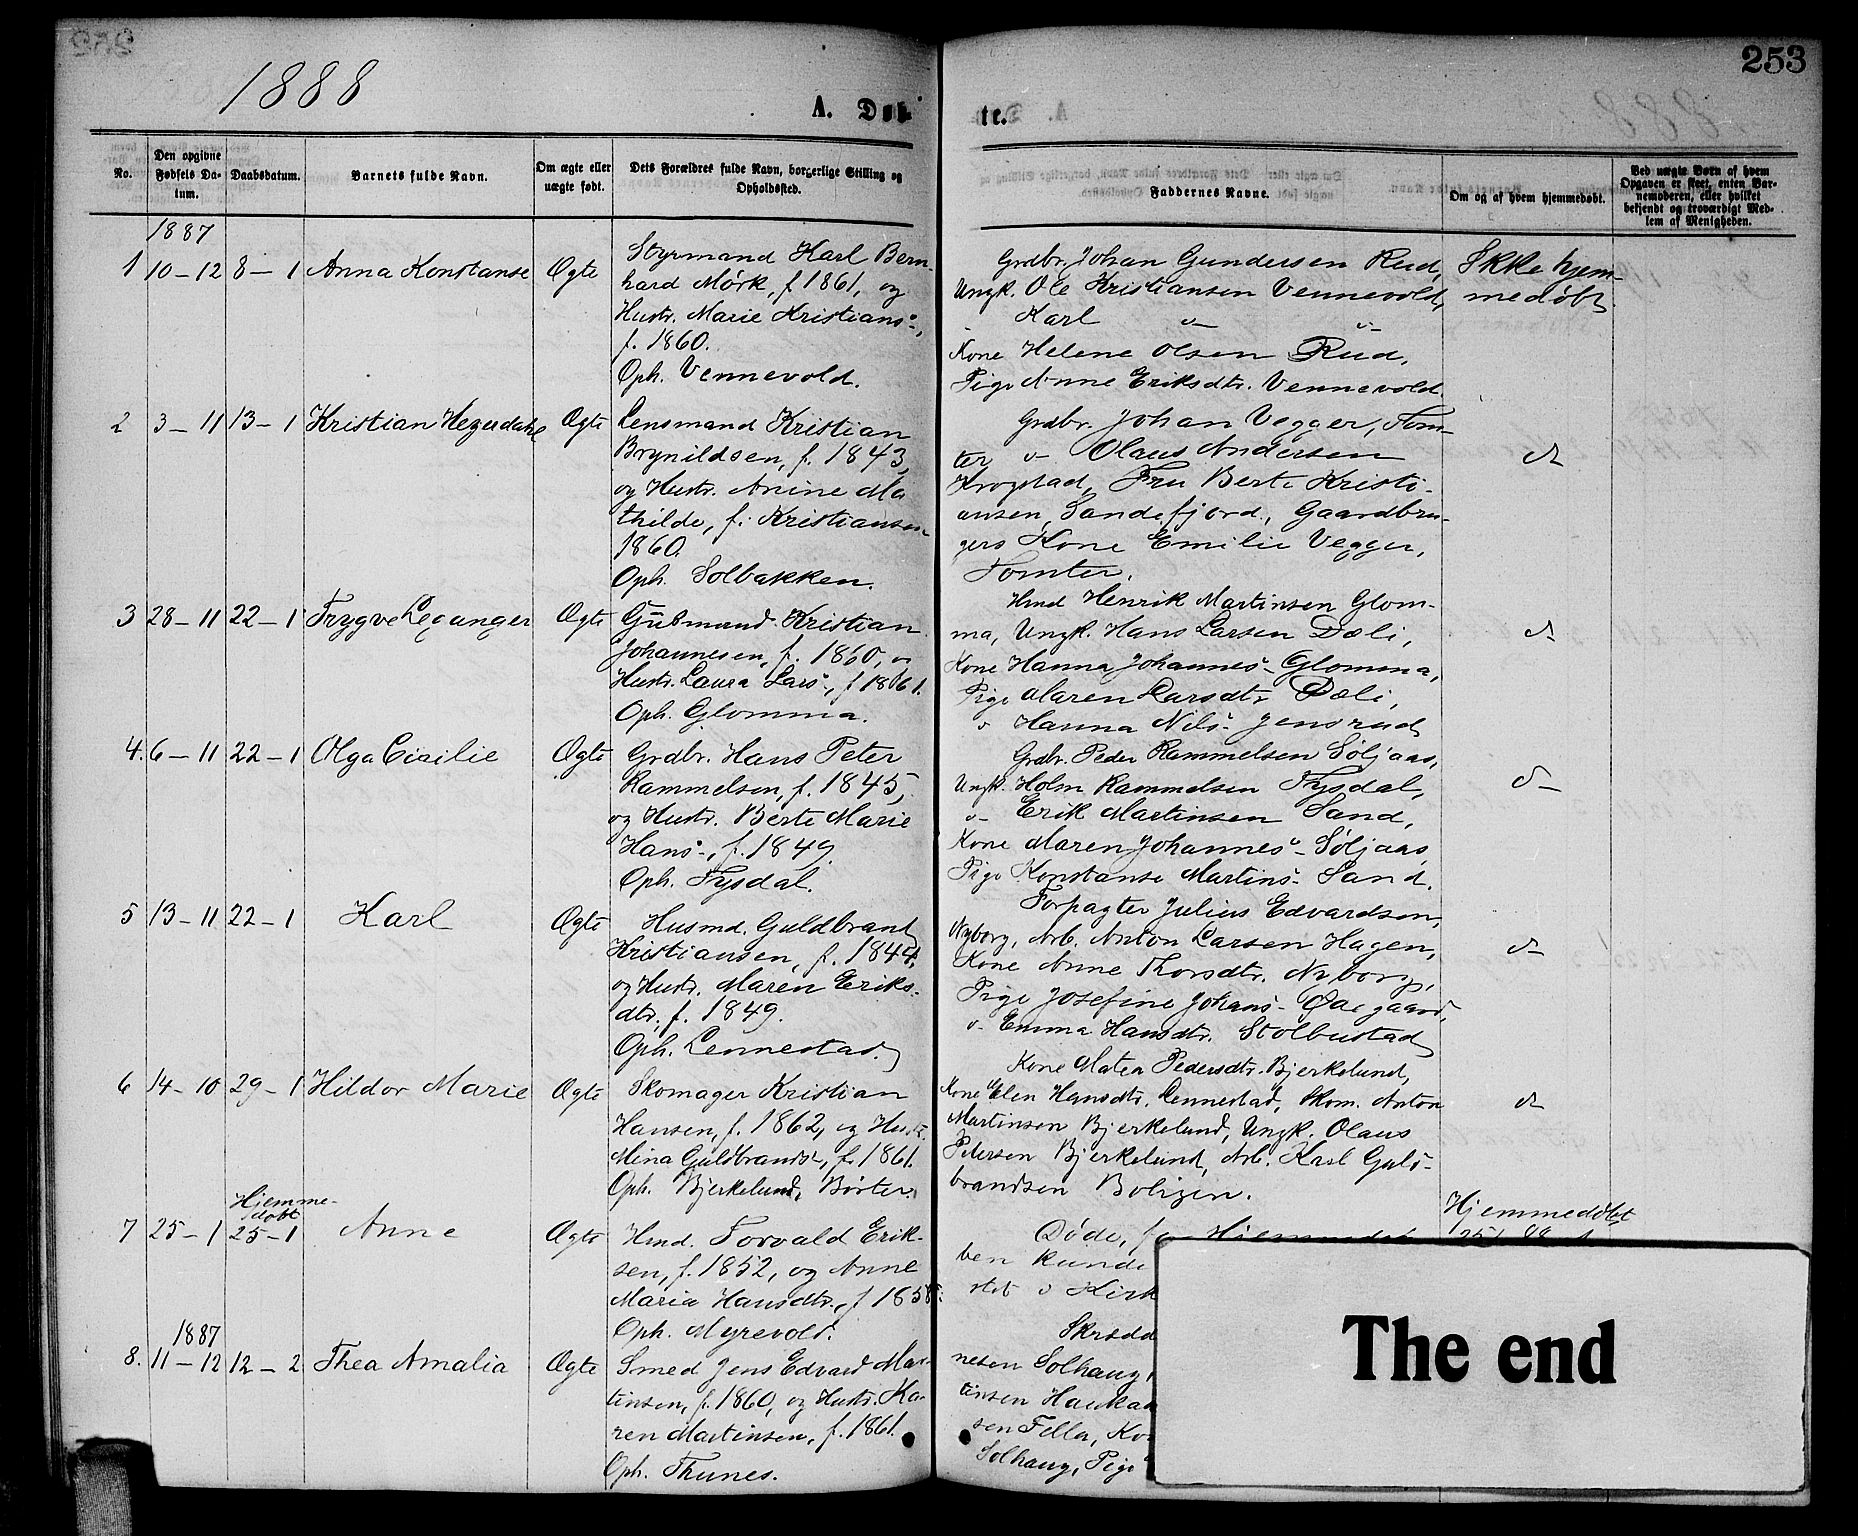 253
1888
A. Døb
te.
No.
Den opgivne Fødsels Datum.
Daabsdatum.
Barnets fulde Navn.
Om ægte eller uægte født.
Dets Forældres fulde Navn, borgerlige Stilling og Opholdsted.
Faddernes Navne.
Om og af hvem hjemmedøbt.
Ved uægte Børn af hvem Opgaven er skeet, enten Barnemoderen, eller hvilket bekjendt og troværdigt Medlem af Menigheden.
1887
1 10-12 8-1 Anna Konstanse Ægte
Styrmand Karl Bern-
hard Mørk, f 1861, og
Hustr. Marie Kristians-,
f. 1860.
Oph. Vennevold.
Grdbr. Johan Gundersen Rud,
Ungk. Ole Kristiansen Vennevold,
Karl
Kone Helene Olsen Rud,
Pige Anne Eriksdtr. Vennevold.
Ikke hjem-
medøbt
2 3-11 13-1 Kristian Ægte
Lensmand Kristian
Brynildsen, f. 1843,
og Hustr. Anine Ma
thilde, f. Kristiansen
1860.
Oph. Solbakken.
Grdbr. Johan Vegger, Tom-
ter Olaus Andersen
Krogstad, Fru Berte Kristi-
ansen, Sandefjord, Gaardbru-
gers Kone Emilie Vegger,
Tomter.
3 28-11 22-1 Trygve Leganger Ægte
Kristian
Johannesen, f. 1860, og
Hustr. Laura Lars-, f 1861.
Oph. Glomma.
Hmd Henrik Martinsen Glom-
ma, Ungk. Hans Larsen Dæli,
Kone Hanna Johannes- Glomma,
Pige Maren Larsdtr. Dæli,
Hanna Nils- Jensrud
4. 6-11 22-1 Olga Cicilie Ægte
Grdbr. Hans Peter
Rammelsen, f. 1845,
og Hustr. Berte Marie
Hans-, f. 1849.
Oph. Tysdal.
Grdbr. Peder Rammelsen Søljaas,
Ungk. Holm Rammelsen Tysdal,
Erik Martinsen Sand,
Kone Maren Johannes- Søljaas,
Pige Konstanse Martins- Sand.
5 13-11 22-1 Karl Ægte
Husmd. Guldbrand
Kristiansen, f. 1844,
og Hustr. Maren Eriks-
dtr, f. 1849.
Oph. Lennestad.
Forpagter Julius Edvardsen,
Nyborg, Arb. Anton Larsen Hagen,
Kone Anne Thorsdtr. Nyborg,
Pige Josefine Johans-
Emma Hansdtr. Stolbustad
6 14-10 29-1 Hildor Marie Ægte
Skomager Kristian
Hansen, f. 1862, og Hustr.
Mina Guldbrands-, f. 1861.
Oph. Bjerkelund, Børter.
Kone Matea Pedersdtr. Bjerkelund,
Kone Elen Hansdtr. Lennestad, Skom. Anton
Martinsen Bjerkelund, Ungk. Olaus
Petersen Bjerkelund, Arb. Karl Guld-
brandsen Boligen.
Hjemme-
døbt
7 25-1 25-1 Anne Ægte
Hmd. Torvald Erik-
sen, f. 1852, og Anne
Maria Hansdtr., f 1858.
Oph. Myrevold.
Døde, før
ben kunde
Kirk
Hjemmedøbt
1887
8. 11-12 12-2 Thea Amalia Ægte
Smed Jens Edvard Mar-
tinsen, f. 1860, og Hustr. Ka-
ren Martinsen, f. 1861.
Oph. Thunes.
Skrædd
nesen Solhaug,
tinsen
sen Fella, Ko
Solhaug, Pige
The end